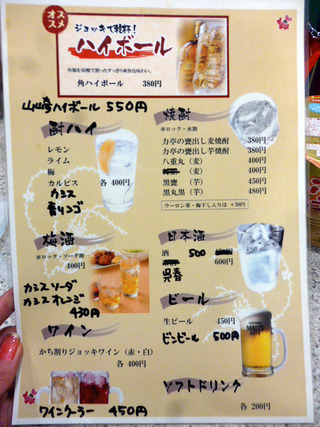 オススメ
ジョッキで乾杯!
ハイボール
角ハイボール 380円
山崎ハイボール 550円
酎ハイ
レモン
ライム
梅
カルピス 各 400円
カシス
青りんご
焼酎
※ロック・水割
力亭の甕出し麦焼酎 380円
力亭の甕出し芋焼酎 380円
八重丸 (麦) 400円
(麦) 400円
黒甕 (芋) 450円
黒丸黒 (芋) 480円
ウーロン茶・梅干し入りは +50円
梅酒
※ロック・ソーダ割
400円
カシスソーダ
カシスオレンジ
430円
日本酒
酒 500
600円
呉春
ワイン
かち割りジョッキワイン (赤・白)
各 400円
ワインクーラー 450円
ビール
生ビール 450円
ビンビール 500円
MALT'S
ソフトドリンク
各 200円